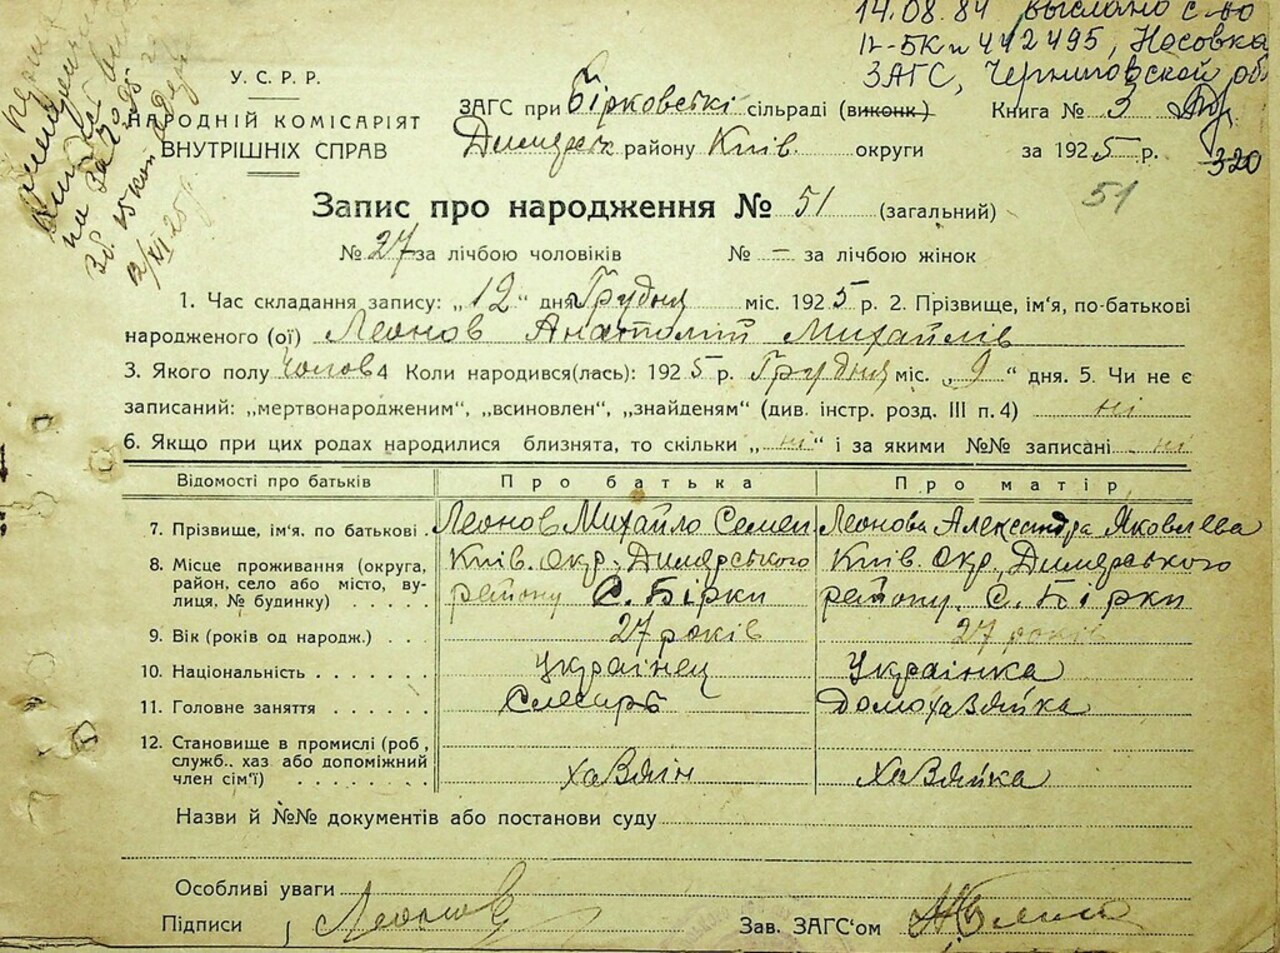 14.08.84 выслано с-во
II-БК № 442495, Носовка
ЗАГС, Черниговской об
У.С.Р.Р.
НАРОДНІЙ КОМІСАРІЯТ
ВНУТРІШНІХ СПРАВ
ЗАГС при Бірковській сільраді (виконк.) Книга № 3
Димерськ району Київ. округи за 1925 р.
320
Запис про народження № 51 (загальний)
51
№ 27 за лічбою чоловіків № – за лічбою жінок
1. Час складання запису: „12“ дня Грудня міс. 1925 р. 2. Прізвище, ім'я, по-батькові
народженого (ої) Леонов Анатолій Михайлів
3. Якого полу чолов 4 Коли народився(лась): 1925 р. Грудня міс. „9“ дня. 5. Чи не є
записаний: „мертвонародженим“, „всиновлен“, „знайденям“ (див. інстр. розд. III п. 4) ні
6. Якщо при цих родах народилися близнята, то скільки „ні“ і за якими №№ записані ні
Відомості про батьків Про батька Про матір
7. Прізвище, ім'я. по батькові. Леонов Михайло Семен Леонова Александра Яковлева
8. Місце проживання (округа, Київ. окр., Димерського Київ. окр., Димерського
район, село або місто, ву- району С. Бірки району. С. Бірки
лиця, № будинку) . . . . .
9. Вік (років од народж.) . . . 27 років 27 років
10. Національність . . . . . . . Українец Українка
11. Головне заняття . . . . . . Слесарь Домохазяйка
12. Становище в промислі (роб,
служб.. хаз або допоміжний хазяін хазяйка
член сім'ї) . . . . . . . .
Назви й №№ документів або постанови суду
Особливі уваги
Підписи Леонов Зав. ЗАГС'ом